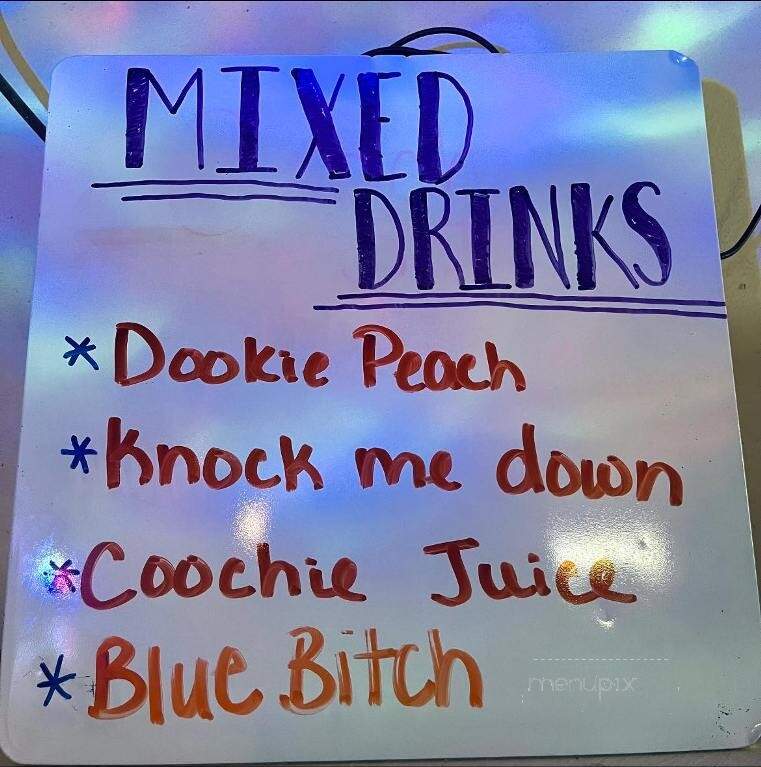 MIXED
DRINKS
* Dookie Peach
* Knock me down
* Coochie Juice
* Blue Bitch
menupix